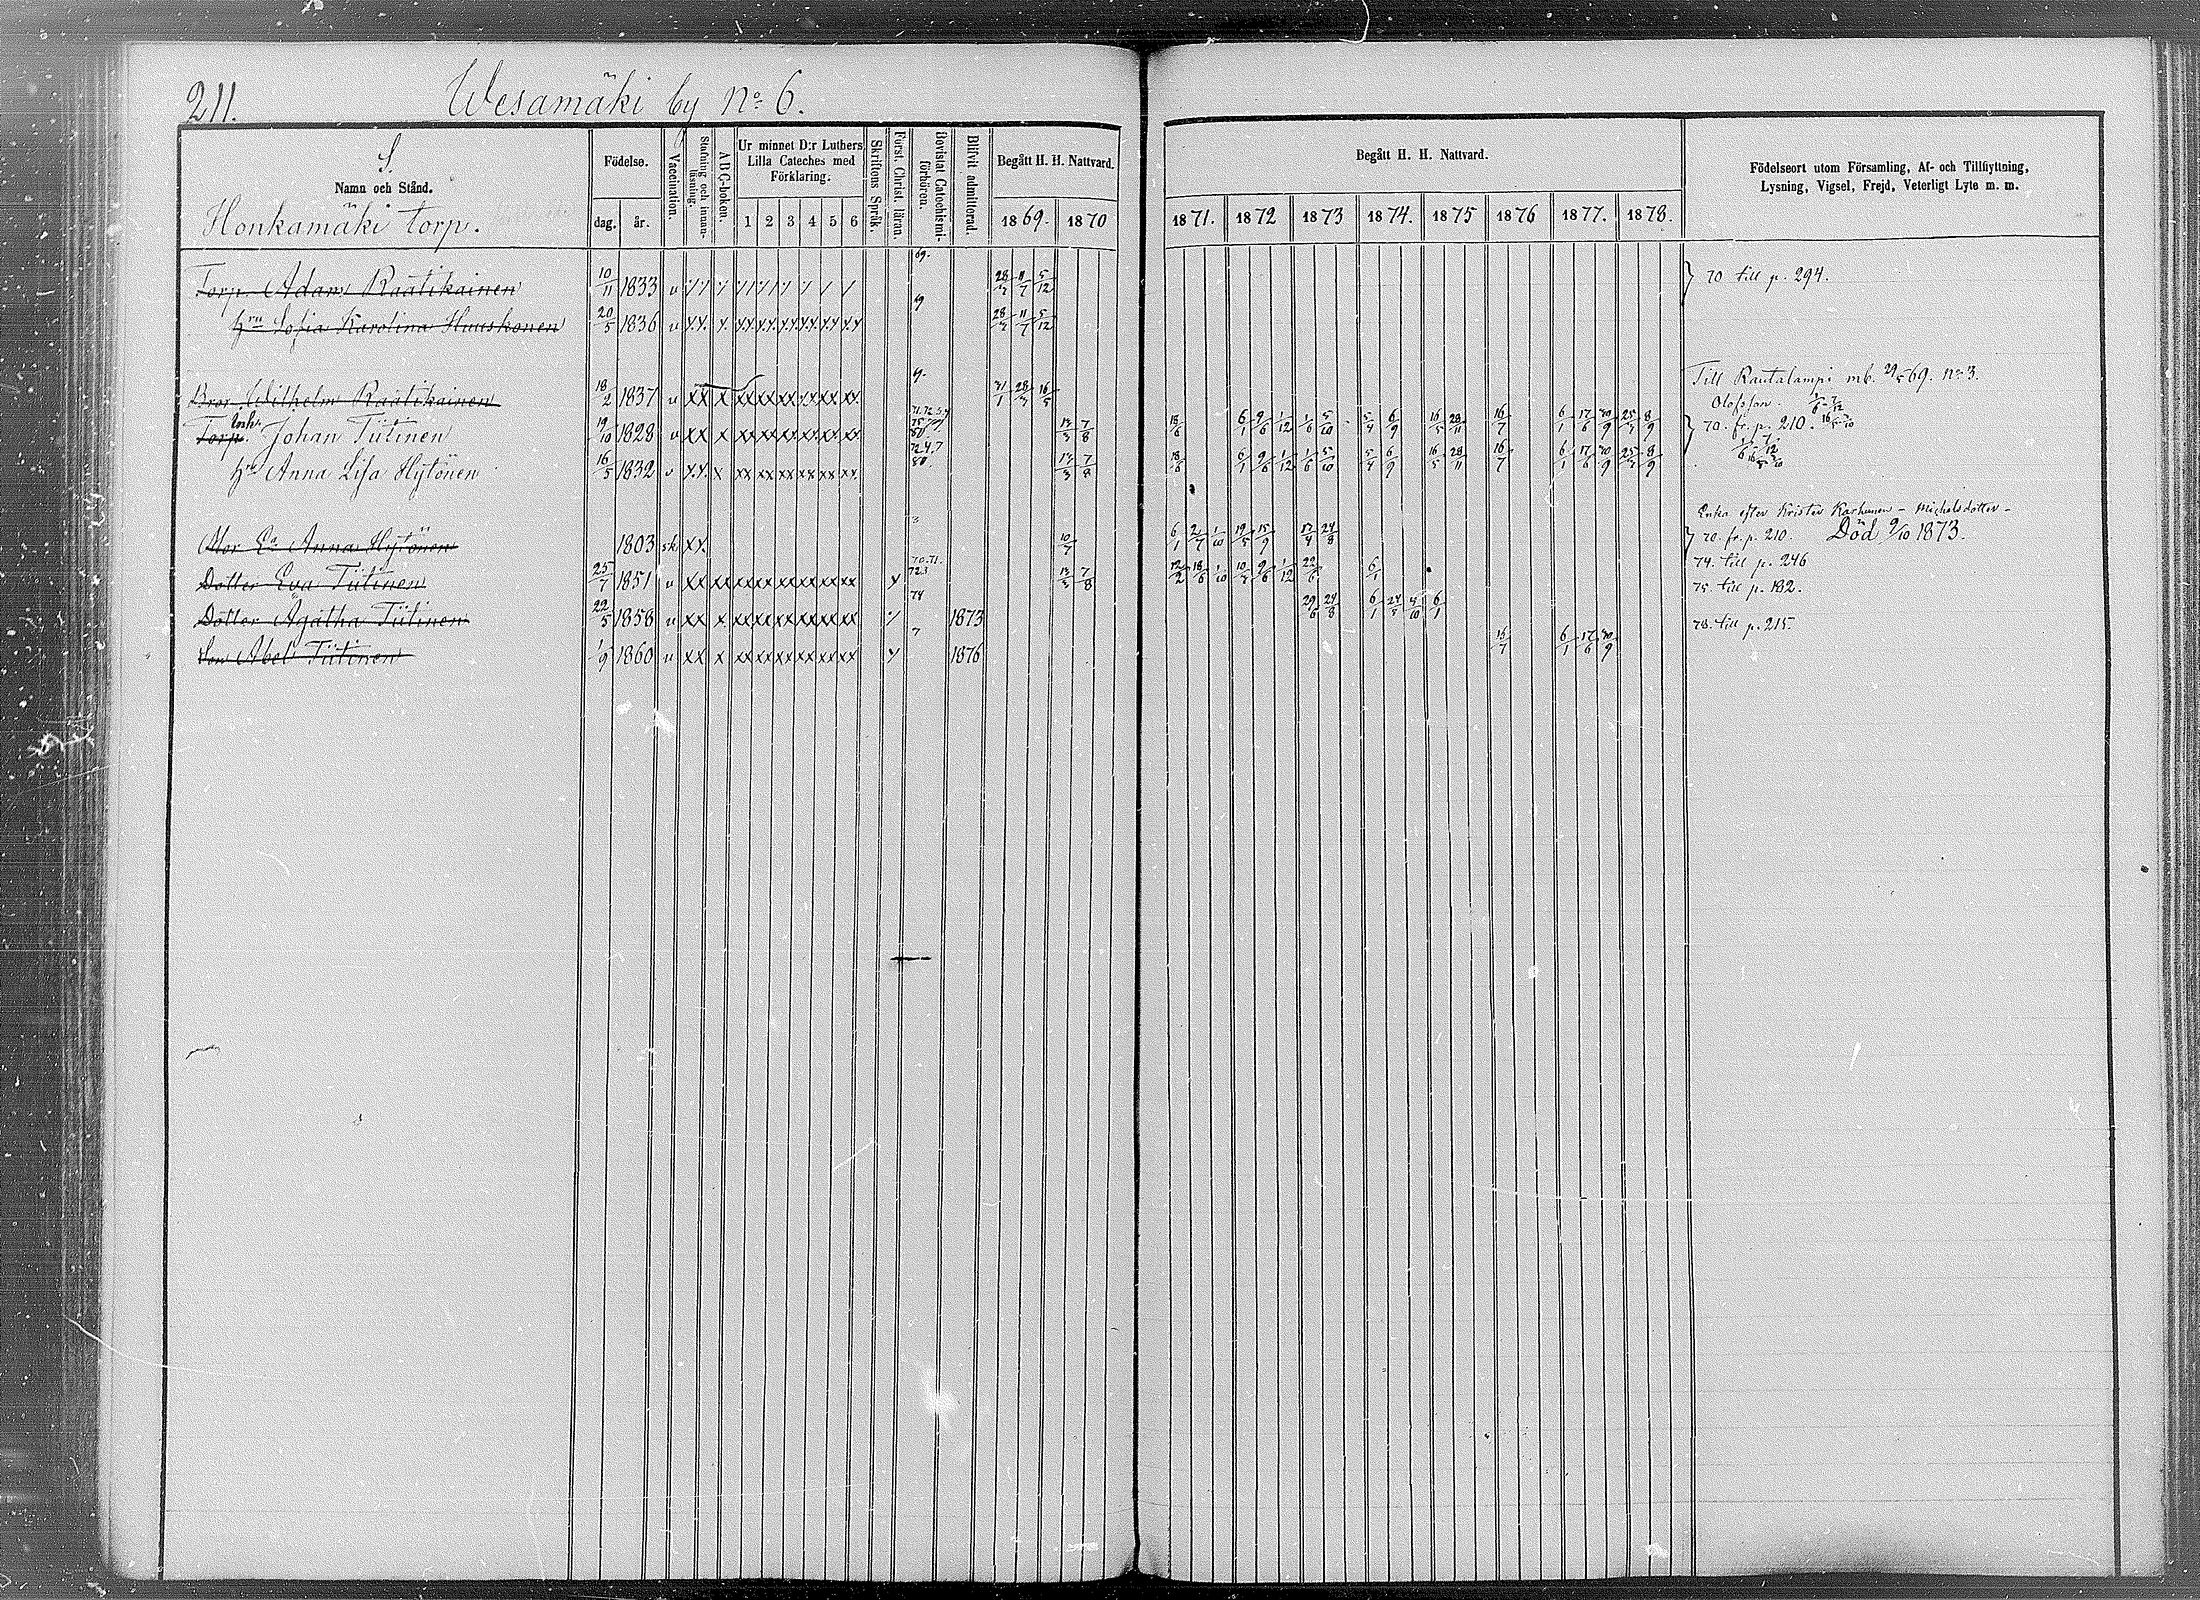 211.
Wesamäki by No 6.
S.
Namn och Stånd.
Honkamäki torp.
Födelse.
dag. år.
Vaccination.
Stafning och innanläsning.
ABC-boken.
Ur minnet D:r Luthers
Lilla Cateches med
Förklaring.
1 2 3 4 5 6
Skriftens Språk.
Först. Christ. läran.
Bevistat Catechismiförhören.
Blifvit admitterad.
Begått H. H. Nattvard.
1869. 1870
Begått H. H. Nattvard.
1871. 1872 1873 1874. 1875 1876 1877. 1878.
Födelseort utom Församling, Af- och Tillflyttning,
Lysning, Vigsel, Frejd, Veterligt Lyte m. m.
69.
Torp. Adam Räätikainen 10/11 1833 v 28/3 11/7 5/12 70 till p. 294.
Hru Sofia Karolina Huuskonen 20/5 1836 v x.x. x. x.x. x.x. x.x. x.x. x.x. x.x 28/3 11/7 5/12
Bror Wilhelm Räätikainen 18/2 1837 v xx x xx xx xx xx xx xx 31/1 28/3 16/5 Till Rautalampi mb. 21/5 69. No 3.
Olofsson.
Torp. Johan Tiitinen 19/10 1828 v xx x xx xx xx xx xx xx 13/3 7/8 18/6 6/1 9/6 1/12 1/6 5/10 5/4 6/9 16/5 28/11 16/7 6/1 17/6 30/9 25/3 8/9 70. fr. p. 210.
Hru Anna Lisa Hytönen 16/5 1832 v x.x. x xx xx xx xx xx xx 13/3 7/8 18/6 6/1 9/6 1/12 1/6 5/10 5/4 6/9 16/5 28/11 16/7 6/1 17/6 30/9 25/3 8/9
Enka efter Krister Karhunen - Michelsdotter -
Mor Ea Anna Hytönen 1803 sk xx. 10/7 6/1 2/7 1/10 19/5 15/9 17/4 24/8 70. fr. p. 210. Död 9/10 1873.
70. 71.
Dotter Eva Tiitinen 25/7 1851 v xx xx xx xx xx xx xx xx x 13/3 7/8 12/2 18/6 1/10 10/3 9/6 1/12 22/6 6/1 74. till p. 246
74
Dotter Agatha Tiitinen 22/5 1858 v xx x xx xx xx xx xx xx 1873 29/6 24/8 6/1 24/5 4/10 6/1 75. till p. 182.
7
Son Abel Tiitinen 1/9 1860 v xx x xx xx xx xx xx xx x 1876 16/7 6/1 17/6 30/9 78. till p. 215.